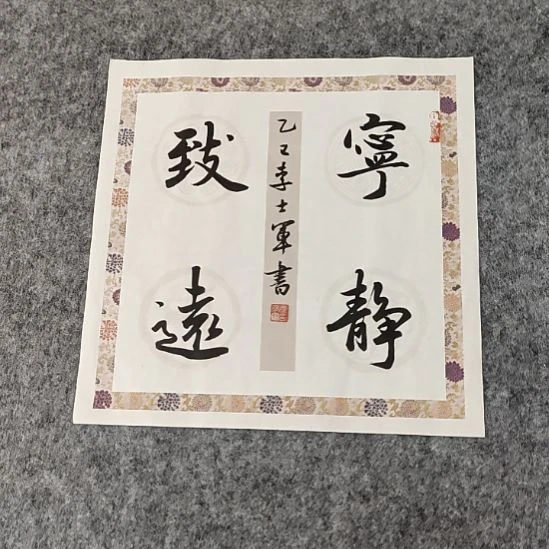 寧静
致遠
乙巳李士軍書